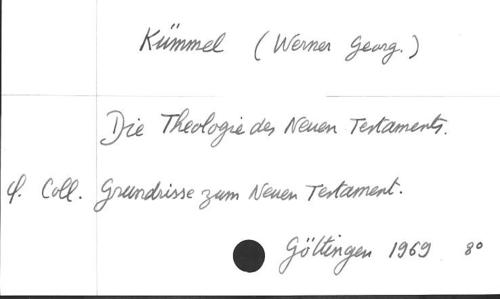 Kümmel (Werner Georg.)
Die Theologie des Neuen Testaments.
cf. Coll. Grundrisse zum Neuen Testament.
Göttingen 1969 8º